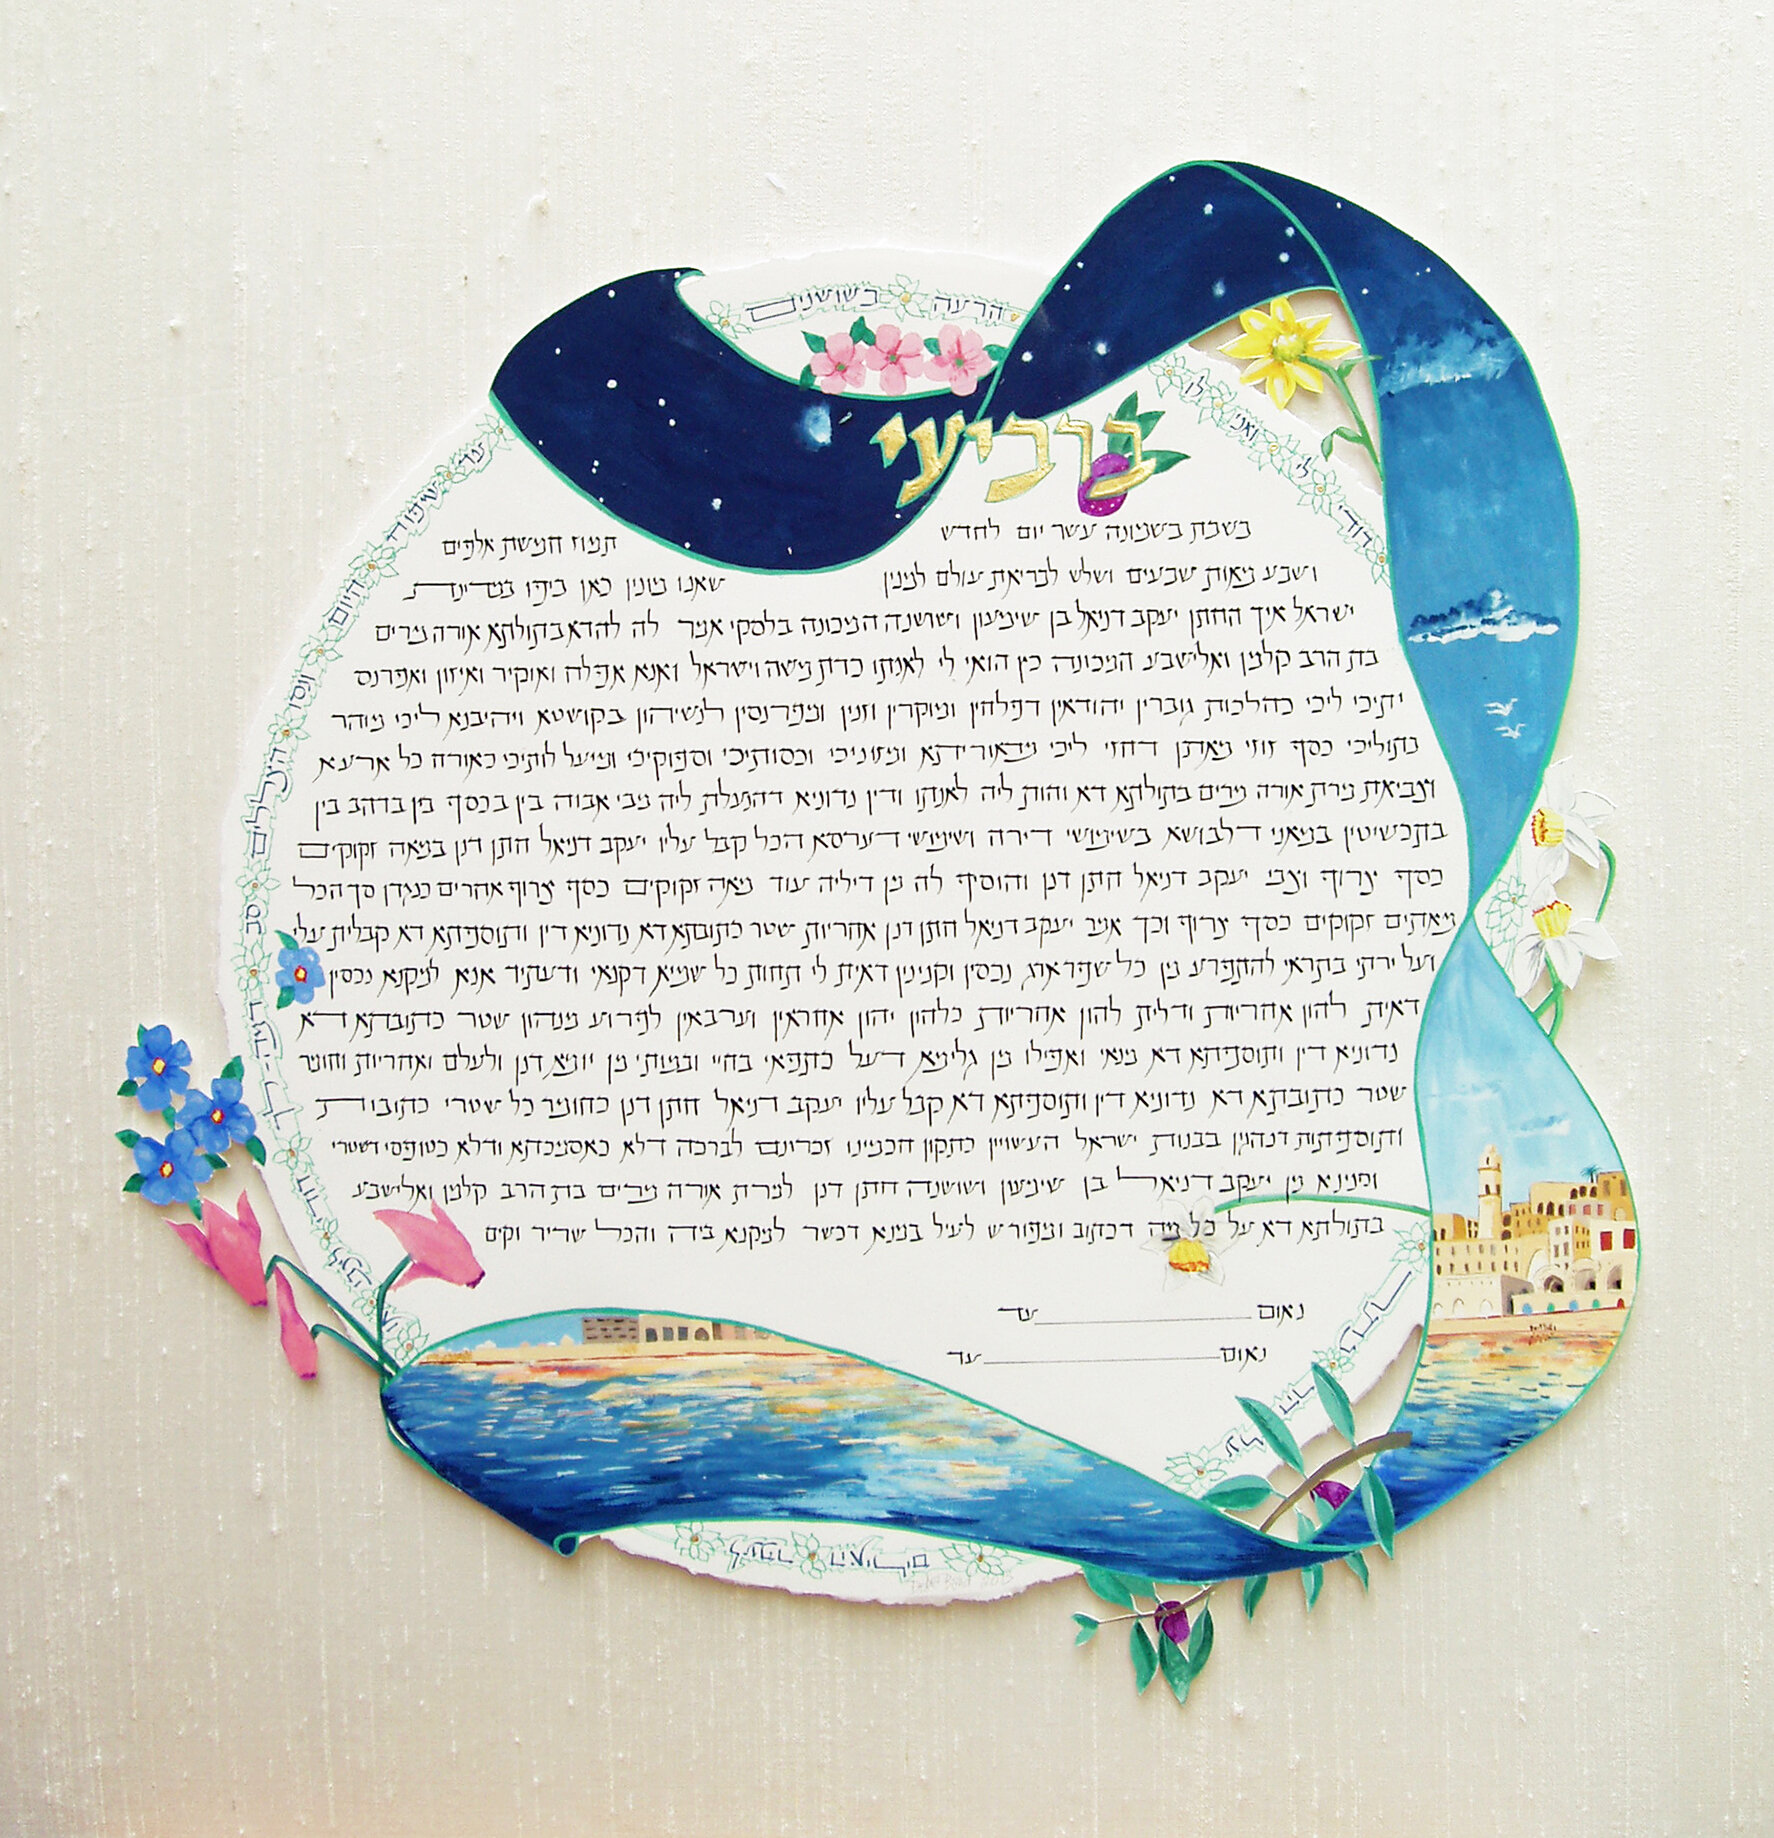 ברביעי
בשבת בשמונה עשר יום לחדש תמוז חמשת אלפים
ושבע מאות שבעים ושלש לבריאת עולם למנין שאנו מונין כאן ביפו במדינת
ישראל איך החתן יעקב דניאל בן שמעון ושושנה המכונה בלסקי אמר לה להדא בתולתא אורה מרים
בת הרב קלמן ואלישבע המכונה כץ הואי לי לאנתו כדת משה וישראל ואנא אפלח ואוקיר ואיזון ואפרנס
יתיכי ליכי כהלכות גוברין יהודאין דפלחין ומוקרין וזנין ומפרנסין לנשיהון בקושטא ויהיבנא ליכי מוהר
בתוליכי כסף זוזי מאתן דחזי ליכי מדאוריתא ומזוניכי וכסותיכי וספוקיכי ומיעל לותיכי כאורח כל ארעא
וצביאת מרת אורה מרים בתולתא דא והות ליה לאנתו ודין נדוניא דהנעלת ליה מבי אבוה בין בכסף בין בדהב בין
בתכשיטין במאני דלבושא בשימושי דירה ושימושי דערסא הכל קבל עליו יעקב דניאל חתן דנן במאה זקוקים
כסף צרוף וצבי יעקב דניאל חתן דנן והוסיף לה מן דיליה עוד מאה זקוקים כסף צרוף אחרים כנגדן סך הכל
מאתים זקוקים כסף צרוף וכך אמר יעקב דניאל חתן דנן אחריות שטר כתובתא דא נדוניא דין ותוספתא דא קבלית עלי
ועל ירתי בתראי להתפרע מן כל שפר ארג נכסין וקנינין דאית לי תחות כל שמיא דקנאי ודעתיד אנא למקנא נכסין
דאית להון אחריות ודלית להון אחריות כלהון יהון אחראין וערבאין לפרוע מנהון שטר כתובתא דא
נדוניא דין ותוספתא דא מנאי ואפילו מן גלימא דעל כתפאי בחיי ובמותי מן יומא דנן ולעלם ואחריות וחומר
שטר כתובתא דא נדוניא דין ותוספתא דא קבל עליו יעקב דניאל חתן דנן כחומר כל שטרי כתובות
ותוספתות דנהגין בבנות ישראל העשויין כתקון חכמינו זכרונם לברכה דלא כאסמכתא ודלא כטופסי דשטרי
וקנינא מן יעקב דניאל בן שמעון ושושנה חתן דנן למרת אורה מרים בת הרב קלמן ואלישבע
בתולתא דא על כל מה דכתוב ומפורש לעיל במנא דכשר למקנא ביה והכל שריר וקים
נאום עד
נאום עד
דודי לי ואני לו
הרעה בשושנים
עד שיפוח היום ונסו הצללים סב דמה לך דודי לצבי או
לעפר האילים
על הרי בתר